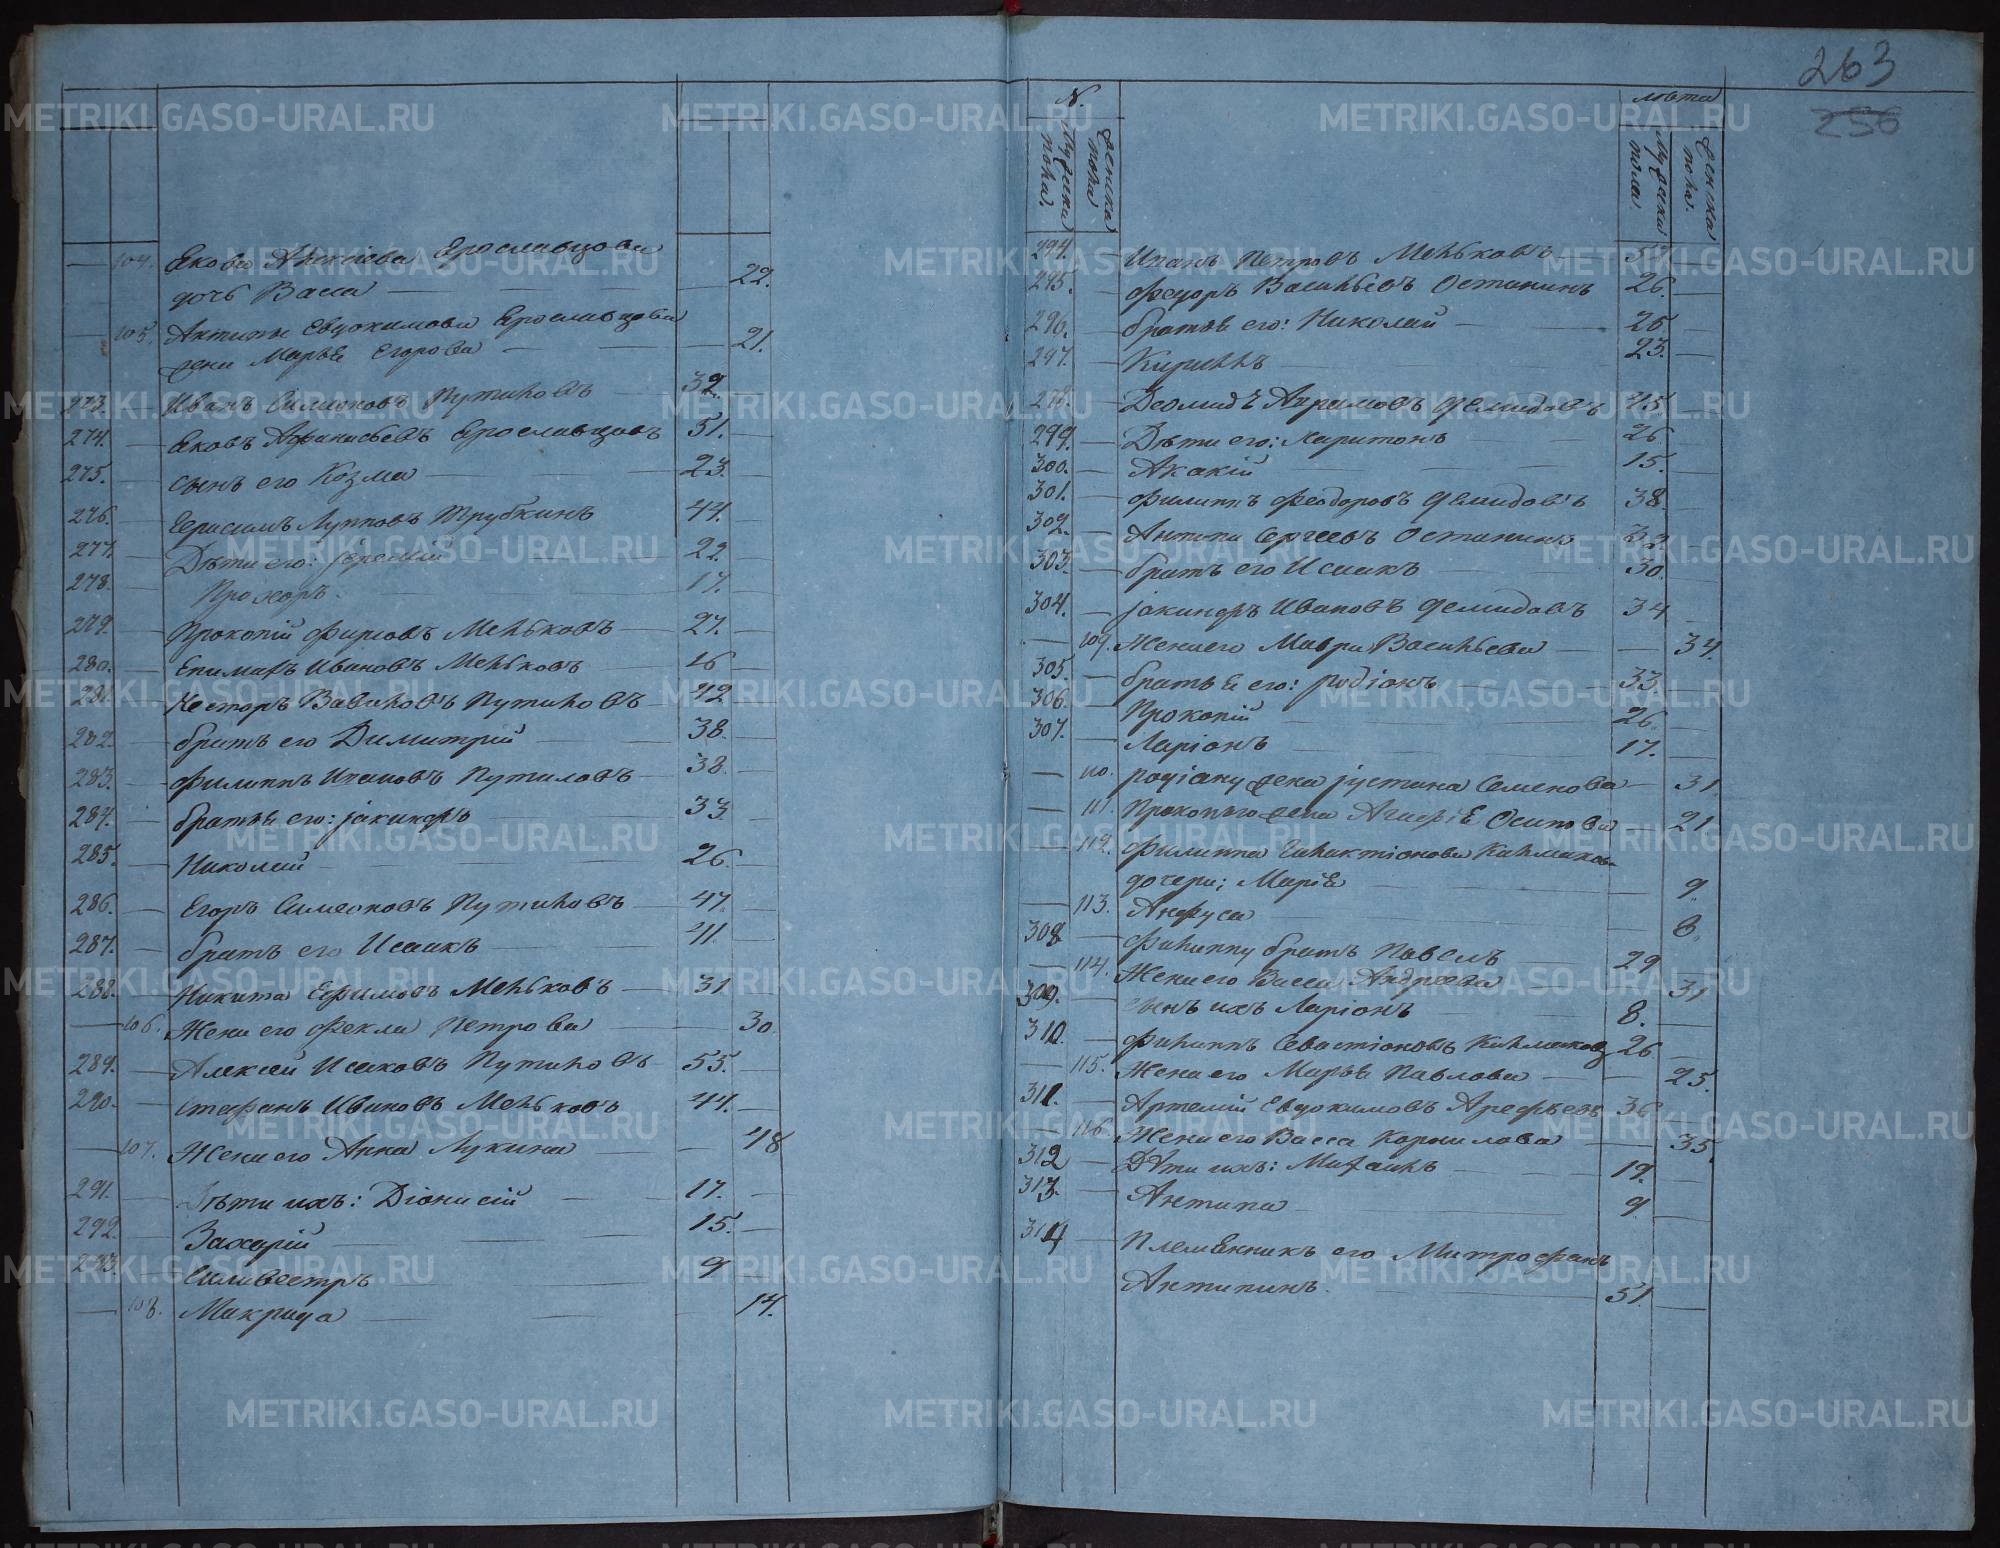 263
256
104. Екова Алексіева Ерославцова
дочь Васса 22.
105. Антипы Евдокимова Ерославцова
жена Марья Егорова 21.
273. Иванъ Симеоновъ Путиловъ 32.
274. Ековъ Афанасьевъ Ерославцовъ 51.
275. сынъ его Козма 23.
276. Герасимъ Лупповъ Трубкинъ 44.
277. Дѣти его: Іеремій 22.
278. Прохоръ. 17.
279. Прокопій Фирсовъ Мельковъ 27.
280. Епимахъ Ивановъ Мельковъ 16
281. Несторъ Вавиловъ Путиловъ 42
282. братъ его Димитрій 38.
283. Филиппъ Ивановъ Путиловъ 38.
284. братья его: Іакинфъ 33.
285. Николай 26.
286. Егоръ Симеоновъ Путиловъ 47.
287. братъ его Исаакъ 41.
288. Никита Ефимовъ Мельковъ 31
106. Жена его Фекла Петрова 30.
289. Алексей Исаковъ Путиловъ 55.
290. Стефанъ Ивановъ Мельковъ 44.
107. Жена его Анна Лукина 48
291. Дѣти ихъ: Діонисій 17.
292. Захарій 15.
293. Силивестръ 9
108. Макрида 14.
N. лѣта
Мужска пола. Женска пола Мужска пола. Женска пола.
294. Иванъ Петровъ Мельковъ
295. Федоръ Васильевъ Останинъ 26.
296. братья его: Николай 25.
297. Кириллъ 23.
298. Деомидъ Аврамовъ Демидовъ 45.
299. Дѣти его: Харитонъ 26
300. Акакій 15.
301. Филиппъ Феодоровъ Демидовъ 38.
302. Антипа Сергеевъ Останинъ 32.
303. братъ его Исаакъ 30.
304. Іакинфъ Ивановъ Демидовъ 34
109. Жена его Мавра Васильева 34.
305. братья его: Родіонъ 33.
306. Прокопій 26.
307. Ларіонъ 17.
110. Родіану жена Іустина Семенова 31
111. Прокопьюго жена Агафья Осипова 21.
112. Филиппа Галактіонова Калмаков
дочери: Марія 9.
113. Анфуса 8.
308. Филиппу братъ Павелъ 29
114. Жена его Васса Андреева 31
309. сынъ ихъ Ларіонъ 8.
310. Филиппъ Севастіоновъ Калмаковъ 26
115. Жена его Марья Павлова 25.
311. Артемій Евдокимовъ Арефьевъ 36
116. Жена его Васса Корнилова 35.
312 Дѣти ихъ: Михаилъ 12.
313. Антипа 9
314 Племянникъ его Митрофанъ
Антипинъ. 31.
METRIKI.GASO-URAL.RU